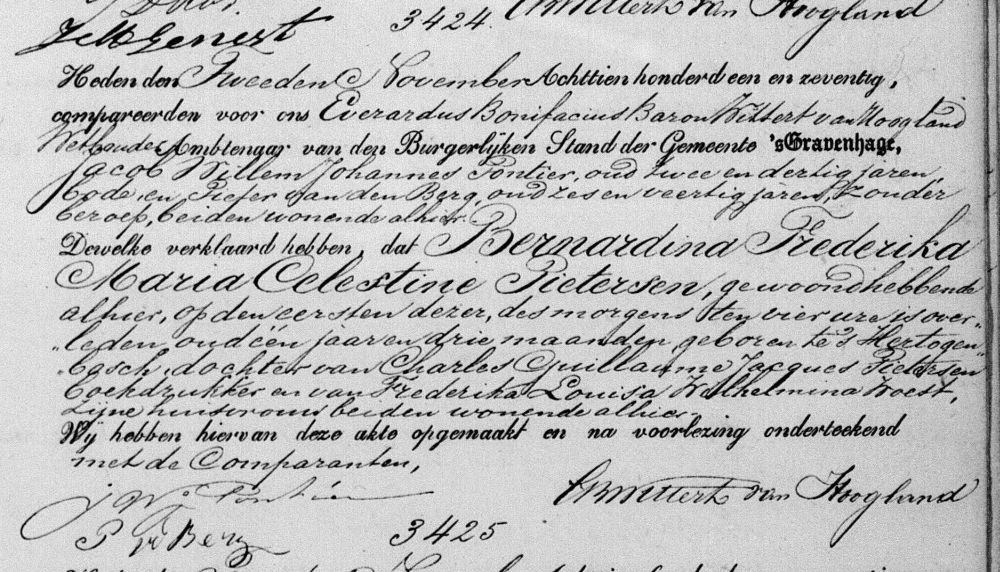 3424. EBWittert van Hoogland
JMGenest
Heden den Tweeden November Achttien honderd een en zeventig,
compareerden voor ons Everardus Bonifacius Baron Wittert van Hoogland
Wethouder Ambtenaar van den Burgerlijken Stand der Gemeente 's Gravenhage,
Jacob Willem Johannes Pontier, oud twee en dertig jaren,
bode, en Pieter van den Berg, oud zes en veertig jaren, zonder
beroep, beiden wonende alhier.
Dewelke verklaard hebben, dat Bernardina Frederika
Maria Celestine Pietersen, gewoond hebbende
alhier, op den eersten dezer, des morgens ten vier ure is over-
"leden, oud één jaar en drie maanden geboren te 's Hertogen-
"bosch, dochter van Charles Guillaume Jacques Pietersen
boekdrukker en van Frederika Louisa Wilhelmina Woest,
zijne huisvrouw beiden wonende alhier.
Wij hebben hiervan deze akte opgemaakt en na voorlezing onderteekend
met de Comparanten,
J W Pontier EBWittert van Hoogland
P vd Berg 3425